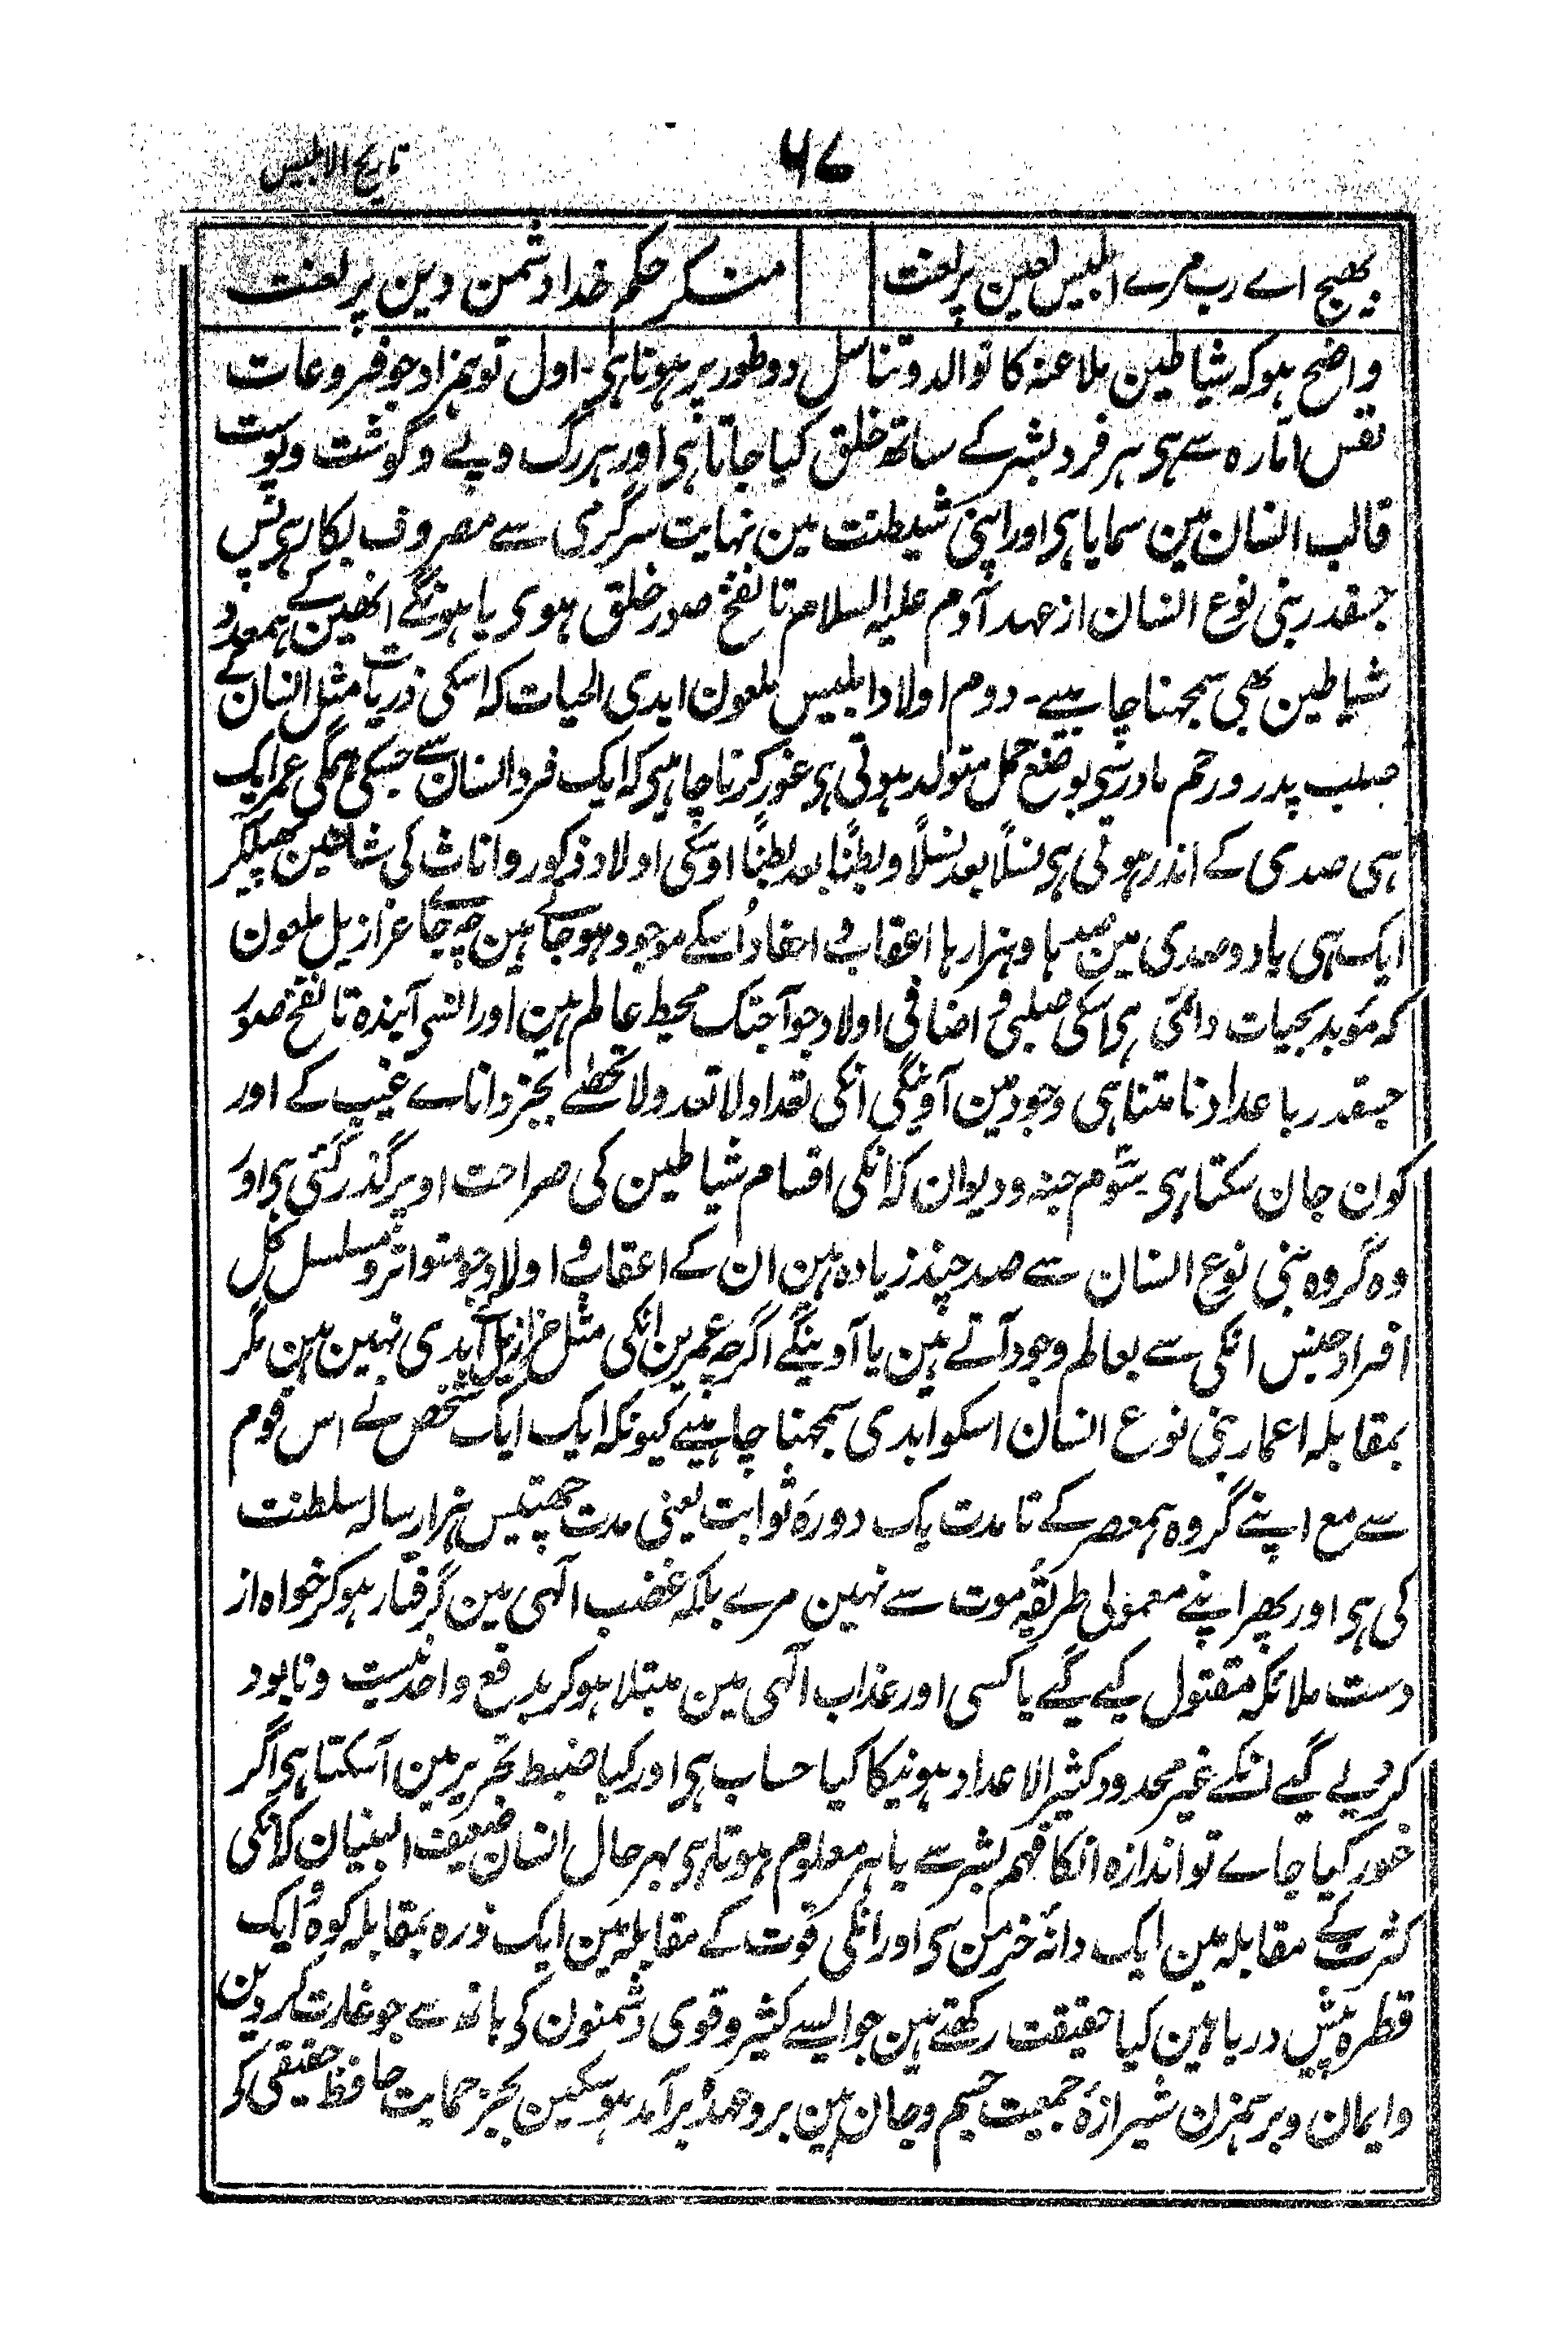 ۶۷
تاریخ الابلیس
بھیج اے رب مرے ابلیس لعین پر لعنت
منکر حکم خدا دشمن دین پر لعنت
واضح ہو کہ شیاطین ملاعنہ کا توالد و تناسل دو طور پر ہوتا ہی۔ اول تو ہمزاد جو فروعات
نفس امارہ سے ہی ہر فرد بشر کے ساتھ خلق کیا جاتا ہی اور ہر رگ و پے و گوشت و پوست
قالب انسان مین سمایا ہی اور اپنی شیطنت مین نہایت سرگرمی سے مصروف بکار ہی پس
جسقدر بنی نوع انسان از عہد آدم علیہ السلام تا نفخ صور خلق ہوی یا ہونگے انھین کے ہمعدد
شیاطین بھی سمجھنا چاہیے۔ دوم اولاد ابلیس ملعون ابدی الحیات کہ اسکی ذریات مثل انسان کے
صلب پدر و رحم مادر سی بوضع حمل متولد ہوتی ہی غور کرنا چاہیی کہ ایک فرد انسان سے جسکی ہمگی عمر ایک
ہی صدی کے اندر ہوتی ہی نسلاً بعد نسلاً و بطناً بعد بطناً اوسکی اولاد ذکور و اناث کی شاخین پھیلکر
ایک ہی یا دو صدی مین صدہا و ہزارہا اعقاب و احفاد اُسکے موجود ہو جاتے ہین چہ جاے عزازیل ملعون
کہ موبد بحیات دائمی ہی اسکی صلبی و اضافی اولاد جو آجتک محیط عالم ہین اور انسی آیندہ تا نفخ صور
جسقدر باعداد نامتناہی وجود مین آوینگی انکی تعداد لاتعد ولا تحصے بجز داناے غیب کے اور
کون جان سکتا ہی۔ سوم جنہ و دیوان کہ انکی اقسام شیاطین کی صراحت اوپر گذر گئی ہی اور
وہ گروہ بنی نوع انسان سے صد چند زیادہ ہین ان کے اعقاب و اولاد جو متواتر و مسلسل کل
افراد جنس انکی سے بعالم وجود آتے ہین یا آوینگے اگرچہ عمرین انکی مثل عزازیل ابدی نہین ہین مگر
بمقابلہ اعمار بنی نوع انسان اسکو ابدی سمجھنا چاہیے کیونکہ ایک ایک شخص نے اس قوم
سے مع اپنے گروہ ہمعصر کے تا مدت یک دورۂ ثوابت یعنی مدت چھتیس ہزار سالہ سلطنت
کی ہی اور پھر اپنے معمولی طریقہ موت سے نہین مرے بلکہ غضب الٰہی مین گرفتار ہو کر خواہ از
دست ملائکہ مقتول کیے گیے یا کسی اور عذاب الٰہی مین مبتلا ہو کر بدفع واحد نیست و نابود
کر دیے گیے انکے غیر محدود کثیر الاعداد ہونیکا کیا حساب ہی اور کیا ضبط تحریر مین آسکتا ہی اگر
غور کیا جاے تو اندازہ انکا فہم بشر سے باہر معلوم ہوتا ہی بہر حال انسان ضعیف البنیان کہ انکی
کثرت کے مقابلہ مین ایک دانۂ خرمن ہی اور انکی قوت کے مقابلہ مین ایک ذرہ بمقابلہ کوہ و ایک
قطرہ پیش دریا ہین کیا حقیقت رکھتے ہین جو ایسے کثیر و قوی دشمنون کی ہاتھ سے جو غارت گر دین
و ایمان و برہمزن شیرازۂ جمعیت جسم و جان ہین بر و عہدہ برآمد ہو سکین بجز حمایت حافظ حقیقی کے